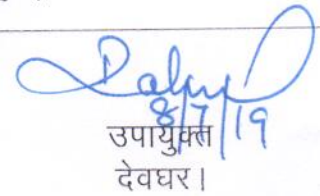 8/7/19
उपायुक्त
देवघर।